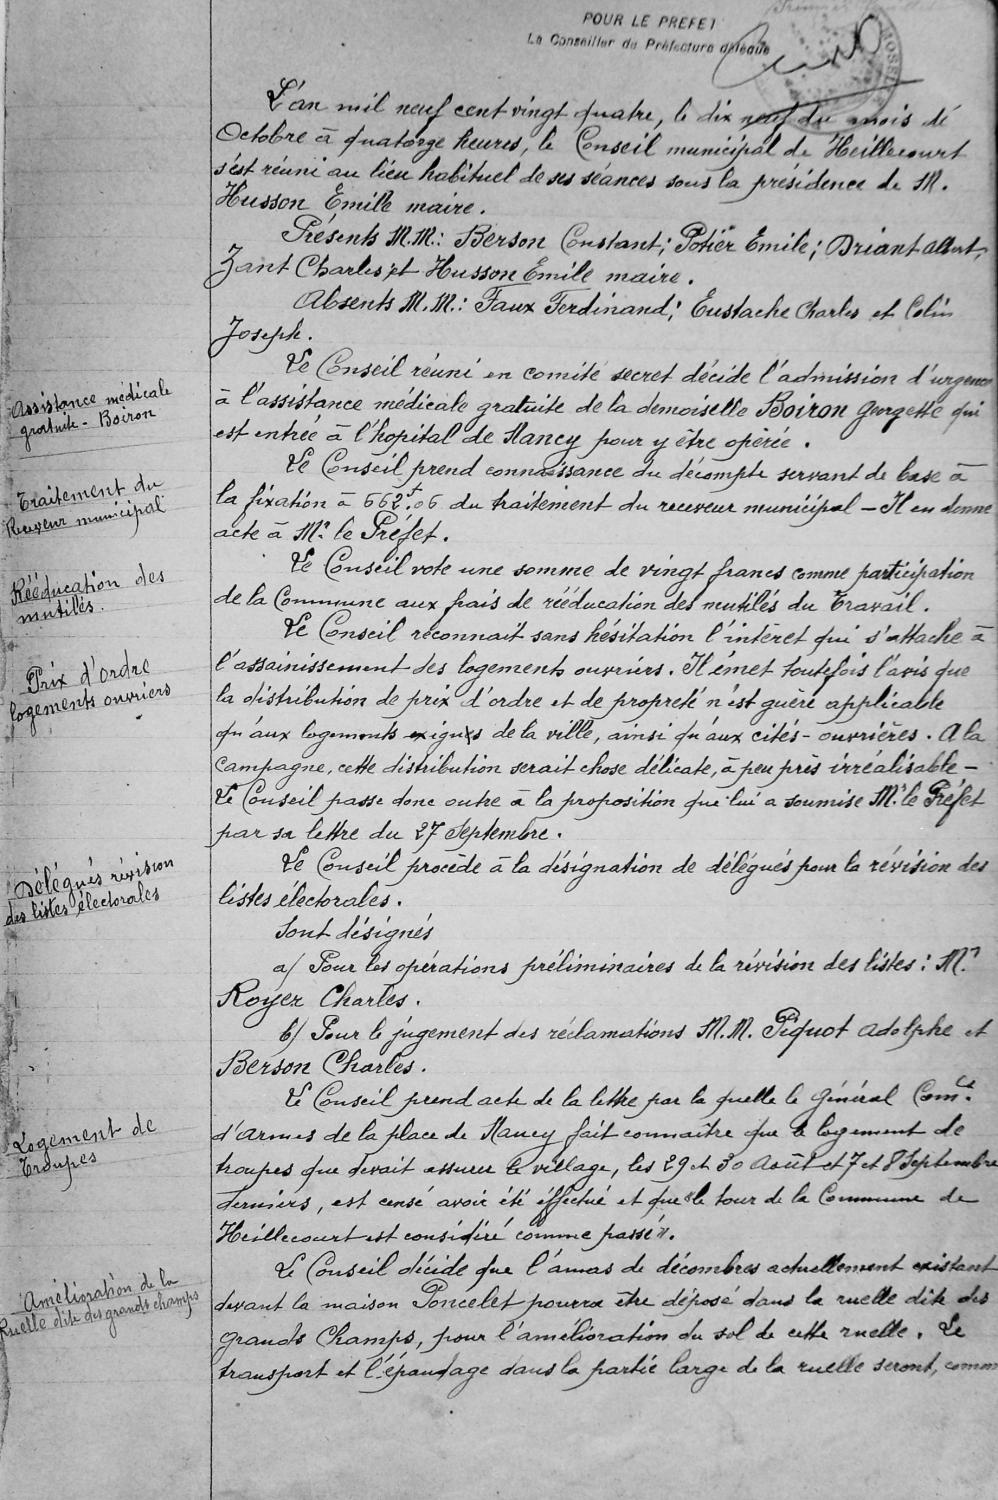 POUR LE PREFET
Le Conseiller de Préfecture délégué
L'an mil neuf cent vingt quatre, le dix neuf du mois de
Octobre à quatorze heures, le Conseil municipal de Heillecourt
s'est réuni au lieu habituel de ses séances sous la présidence de M.
Husson Emile maire.
Présents M.M.: Berson Constant; Potier Emile; Briant Albert,
Zant Charles et Husson Emile maire.
Absents M.M.: Faux Ferdinand; Eustache Charles et Colin
Joseph.
Assistance médicale
gratuite - Boiron
Le Conseil réuni en comité secret décide l'admission d'urgence
à l'assistance médicale gratuite de la demoiselle Boiron Georgette qui
est entrée à l'hopital de Nancy pour y être opérée.
Traitement du
Receveur municipal
Le Conseil prend connaissance du décompte servant de base à
la fixation à 662f.06 du traitement du receveur municipal - Il en donne
acte à Mr. le Préfet.
Rééducation des
mutilés.
Le Conseil vote une somme de vingt francs comme participation
de la Commune aux frais de rééducation des mutilés du Travail.
Prix d'ordre
logements ouvriers
Le Conseil reconnait sans hésitation l'intèret qui s'attache à
l'assainissement des logements ouvriers. Il émet toutefois l'avis que
la distribution de prix d'ordre et de propreté n'est guère applicable
qu'aux logements exigus de la ville, ainsi qu'aux cités-ouvrières. A la
campagne, cette distribution serait chose délicate, à peu près irréalisable -
Le Conseil passe donc outre à la proposition que lui a soumise Mr. le Préfet
par sa lettre du 27 Septembre.
Délégués révision
des listes électorales
Le Conseil procède à la désignation de délégués pour la révision des
listes électorales.
Sont désignés
a/ Pour les opérations préliminaires de la révision des listes: Mr.
Royer Charles.
b/ Pour le jugement des réclamations M.M. Piquot Adolphe et
Berson Charles.
Logement de
Troupes
Le Conseil prend acte de la lettre par la quelle le Général Comt.
d'Armes de la place de Nancy fait connaître que le logement de
troupes que devait assurer le village, les 29 et 30 Août et 7 et 8 Septembre
derniers, est censé avoir été éffectué et que "le tour de la Commune de
Heillecourt est considéré comme passé".
Amélioration de la
Ruelle dite des grands champs
Le Conseil décide que l'amas de décombres actuellement existant
devant la maison Poncelet pourra être déposé dans la ruelle dite des
grands Champs, pour l'amélioration du sol de cette ruelle. Le
transport et l'épandage dans la partie large de la ruelle seront, comm